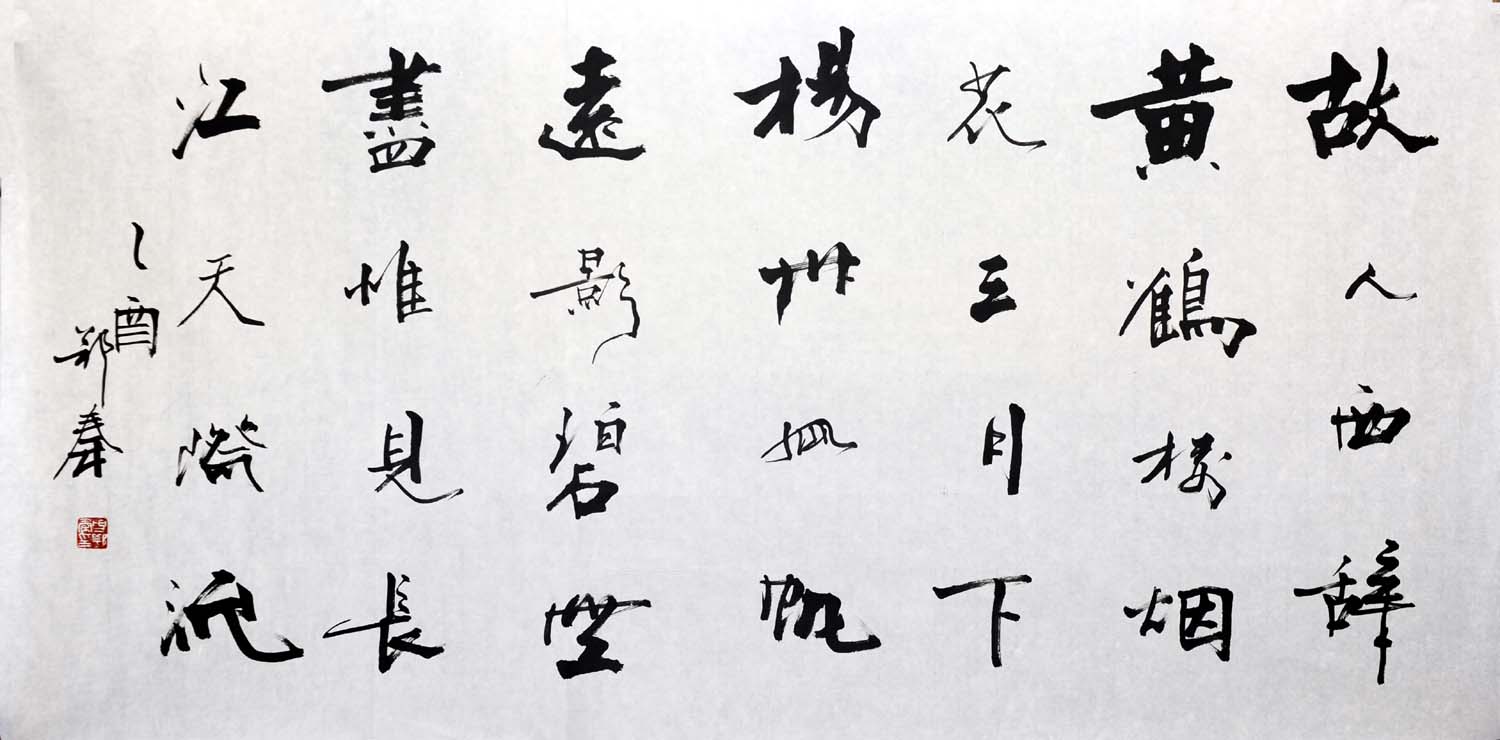 故人西辞
黄鶴楼烟
花三月下
楊州孤帆
遠影碧空
盡惟見長
江天際流
乙酉
郑